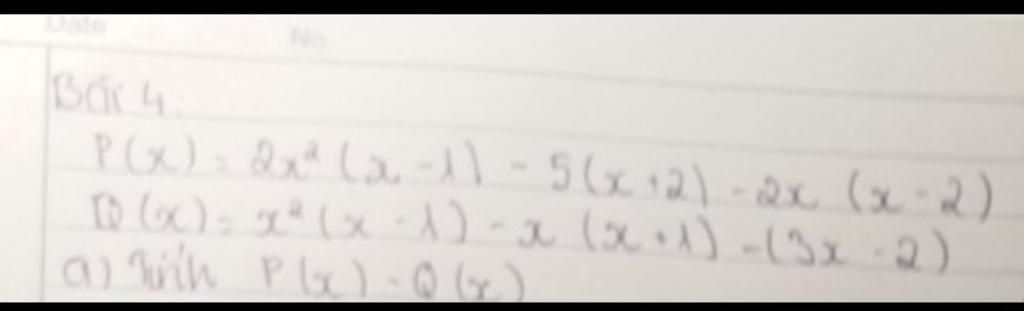 Date No
Bài 4:
P(x) = 2x² (x - 1) - 5(x + 2) - 2x (x - 2)
Q(x) = x² (x - 1) - x (x + 1) - (3x - 2)
a) Tính P(x) - Q(x)